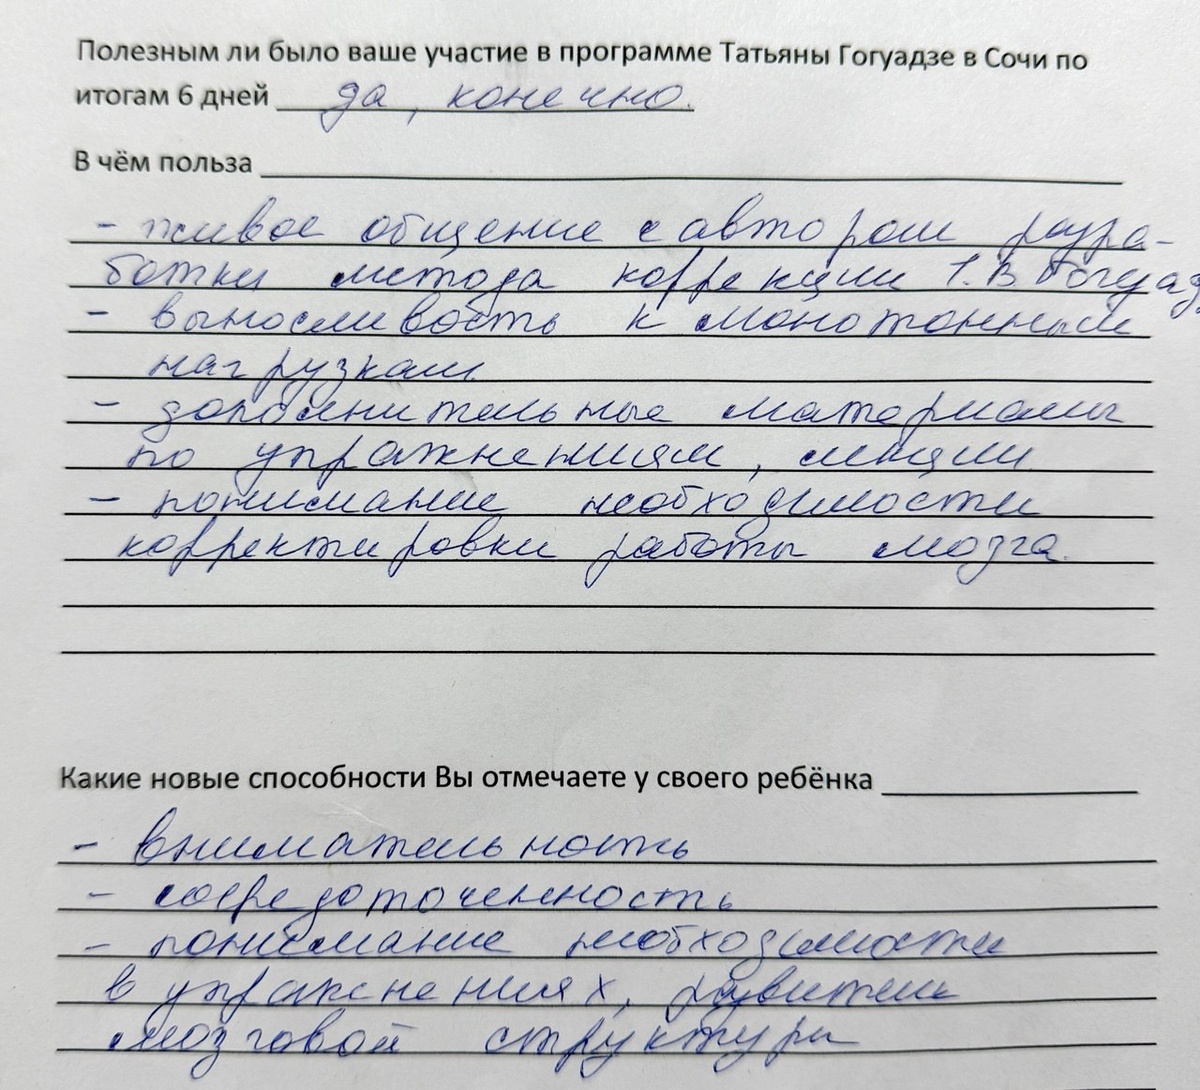 Полезным ли было ваше участие в программе Татьяны Гогуадзе в Сочи по
итогам 6 дней да, конечно.
В чём польза
- живое общение с автором разра-
ботки метода коррекции Т.В Гогуадз
- выносливость к монотонным
нагрузкам
- дополнительные материалы
по упражнениям, лекции
- понимание необходимости
корректировки работы мозга.
Какие новые способности Вы отмечаете у своего ребёнка
- внимательность
- сосредоточенность
- понимание необходимости
в упражнениях, развитии
мозговой структуры